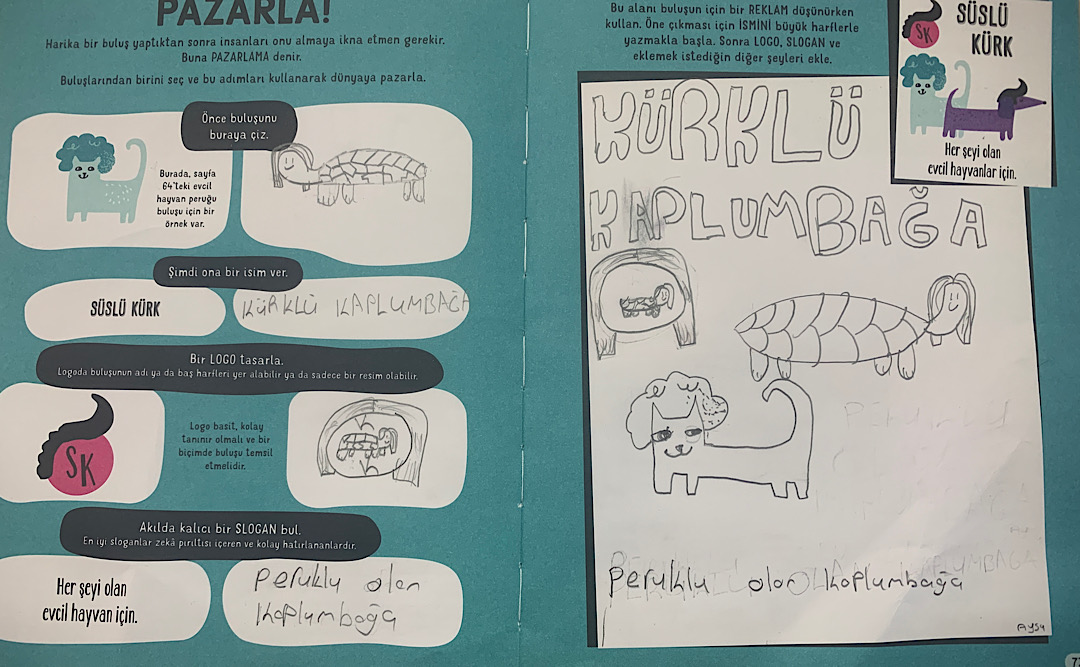 PAZARLA!
Harika bir buluş yaptıktan sonra insanları onu almaya ikna etmen gerekir.
Buna PAZARLAMA denir.
Buluşlarından birini seç ve bu adımları kullanarak dünyaya pazarla.
Önce buluşunu
buraya çiz.
Burada, sayfa
64'teki evcil
hayvan peruğu
buluşu için bir
örnek var.
Şimdi ona bir isim ver.
SÜSLÜ KÜRK
KÜRKLÜ KAPLUMBAĞA
Bir LOGO tasarla.
Logoda buluşunun adı ya da baş harfleri yer alabilir ya da sadece bir resim olabilir.
SK
Logo basit, kolay
tanınır olmalı ve bir
biçimde buluşu temsil
etmelidir.
Akılda kalıcı bir SLOGAN bul.
En iyi sloganlar zekâ pırıltısı içeren ve kolay hatırlananlardır.
Her şeyi olan
evcil hayvan için.
Peruklu olan
kaplumbağa
Bu alanı buluşun için bir REKLAM düşünürken
kullan. Öne çıkması için İSMİNİ büyük harflerle
yazmakla başla. Sonra LOGO, SLOGAN ve
eklemek istediğin diğer şeyleri ekle.
SK
SÜSLÜ
KÜRK
Her şeyi olan
evcil hayvanlar için.
KÜRKLÜ
KAPLUMBAĞA
Peruklu olan kaplumbağa
AYSU